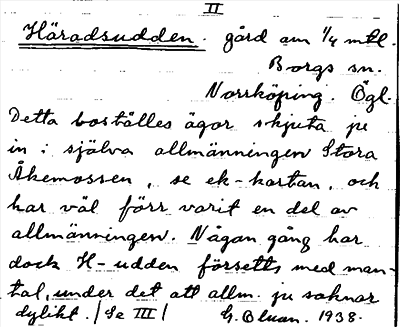 II
Häradsudden. gård om 1/4 mtl.
Borgs sn.
Norrköping. Ögl.
Detta boställes ägor skjuta ju
in i själva allmänningen Stora
Åkemossen, se ek-kartan, och
har väl förr varit en del av
allmänningen. Någon gång har
dock H-udden försetts med man-
tal, under det att allm. ju saknar
dylikt. /Se III/ G. Bluan. 1938.